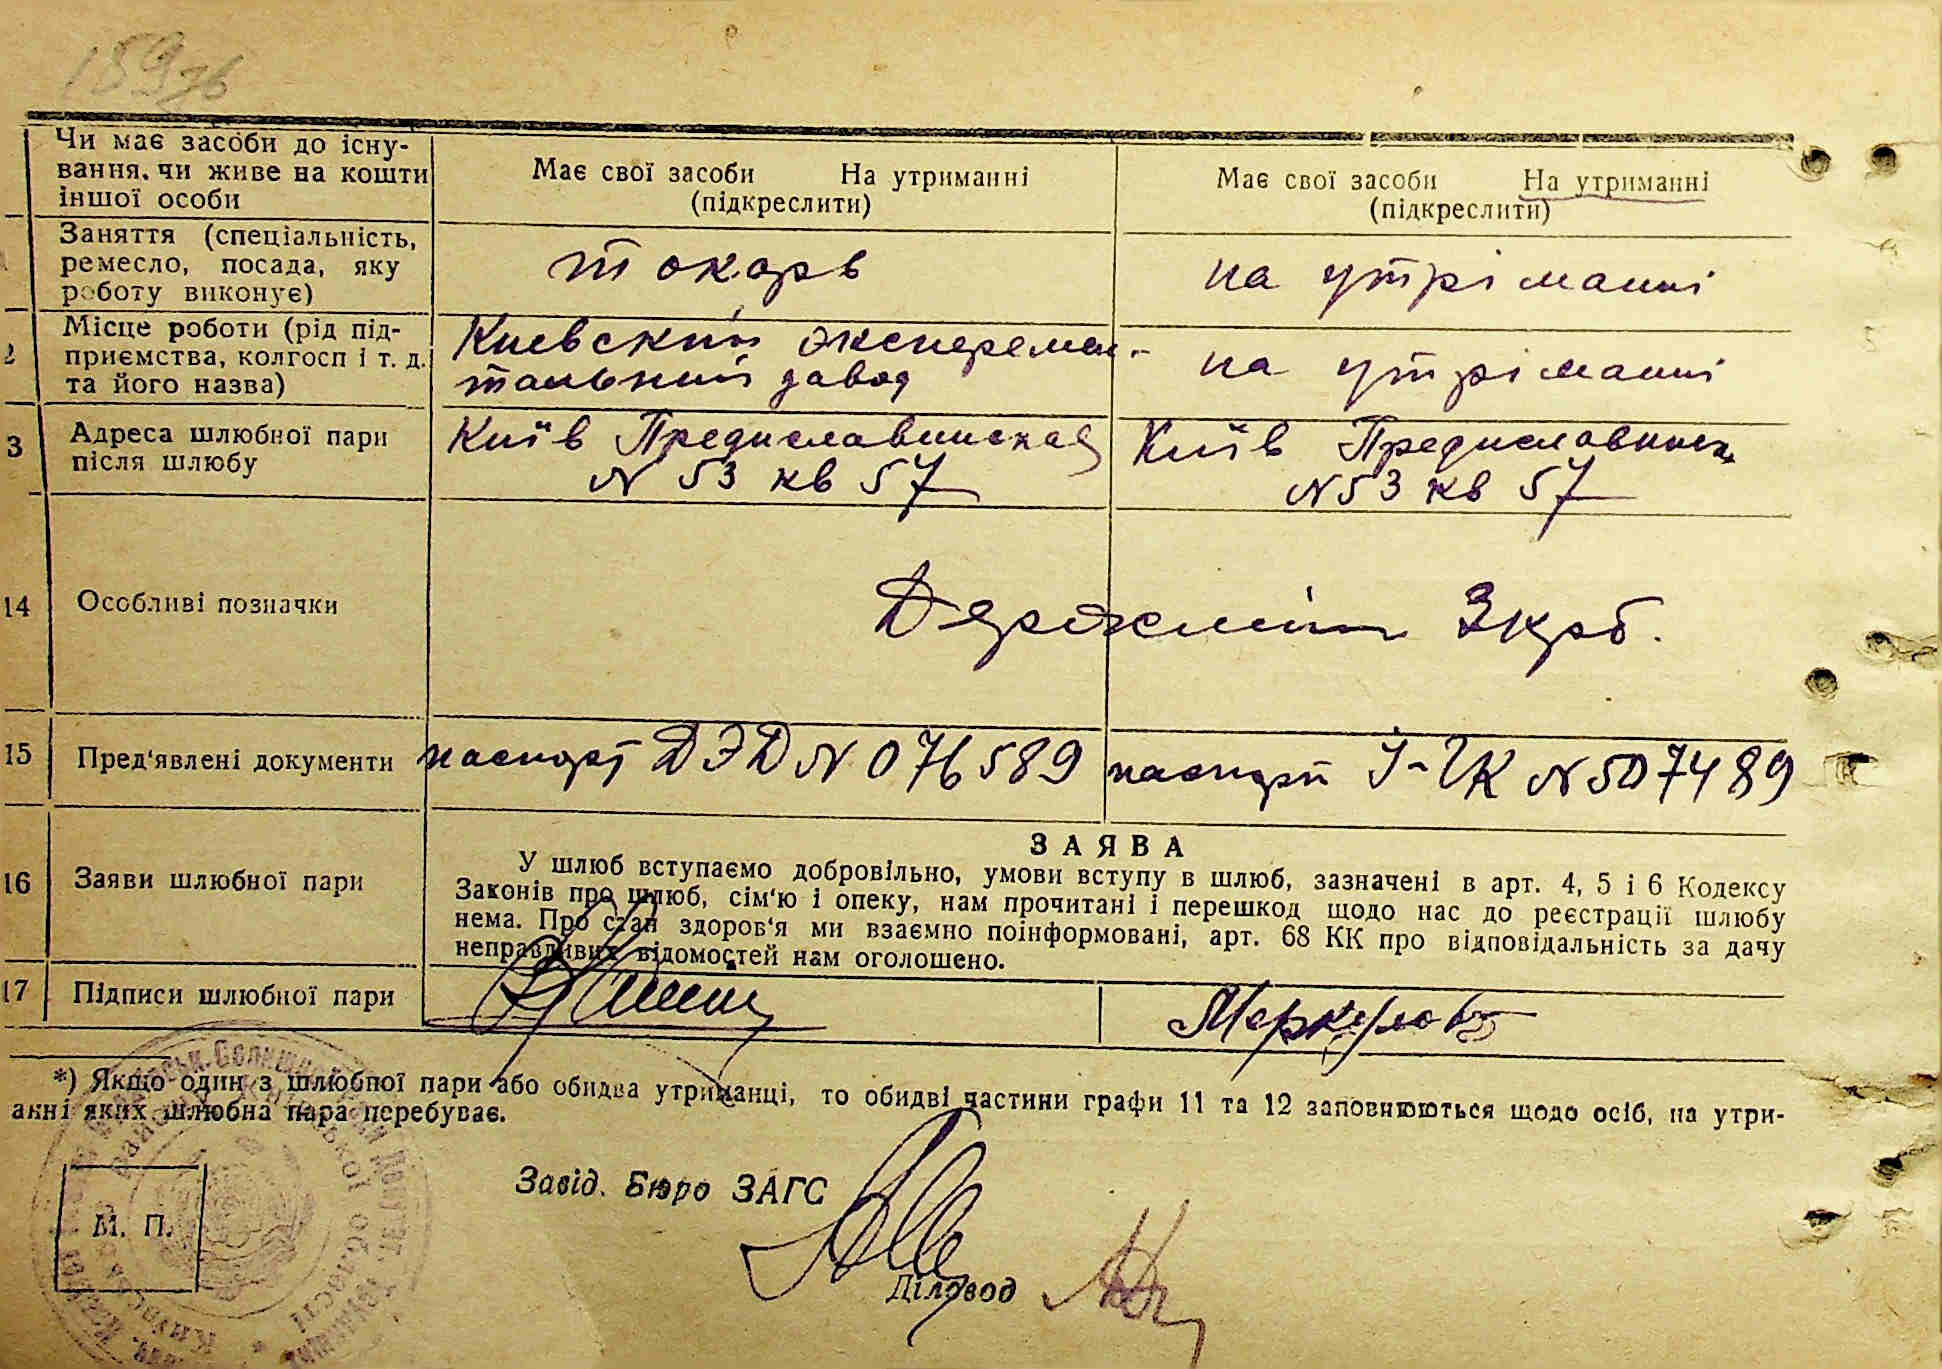 159зв
Чи має засоби до існу-
вання, чи живе на кошти
іншої особи
Має свої засоби На утриманні
(підкреслити)
Має свої засоби На утриманні
(підкреслити)
Заняття (спеціальність,
ремесло, посада, яку
роботу виконує)
токарь
на утріманні
2 Місце роботи (рід під-
приємства, колгосп і т. д.
та його назва)
Киевский эксперемен-
тальний завод
на утріманні
3 Адреса шлюбної пари
після шлюбу
Київ Предиславинская
N 53 кв 57
Київ Предиславинск
N 53 кв 57
14 Особливі позначки
Держмит 3 крб.
15 Пред'явлені документи
паспорт ДЭД N 076589
паспорт N 507489
16 Заяви шлюбної пари
ЗАЯВА
У шлюб вступаємо добровільно, умови вступу в шлюб, зазначені в арт. 4, 5 і 6 Кодексу
Законів про шлюб, сім'ю і опеку, нам прочитані і перешкод щодо нас до реєстрації шлюбу
нема. Про стан здоров'я ми взаємно поінформовані, арт. 68 КК про відповідальність за дачу
неправдивих відомостей нам оголошено.
17 Підписи шлюбної пари
Меркулова
*) Якщо один з шлюбної пари або обидва утриманці, то обидві частини графи 11 та 12 заповнюються щодо осіб, на утри-
анні яких шлюбна пара перебуває.
Завід. Бюро ЗАГС
М. П.
Діловод